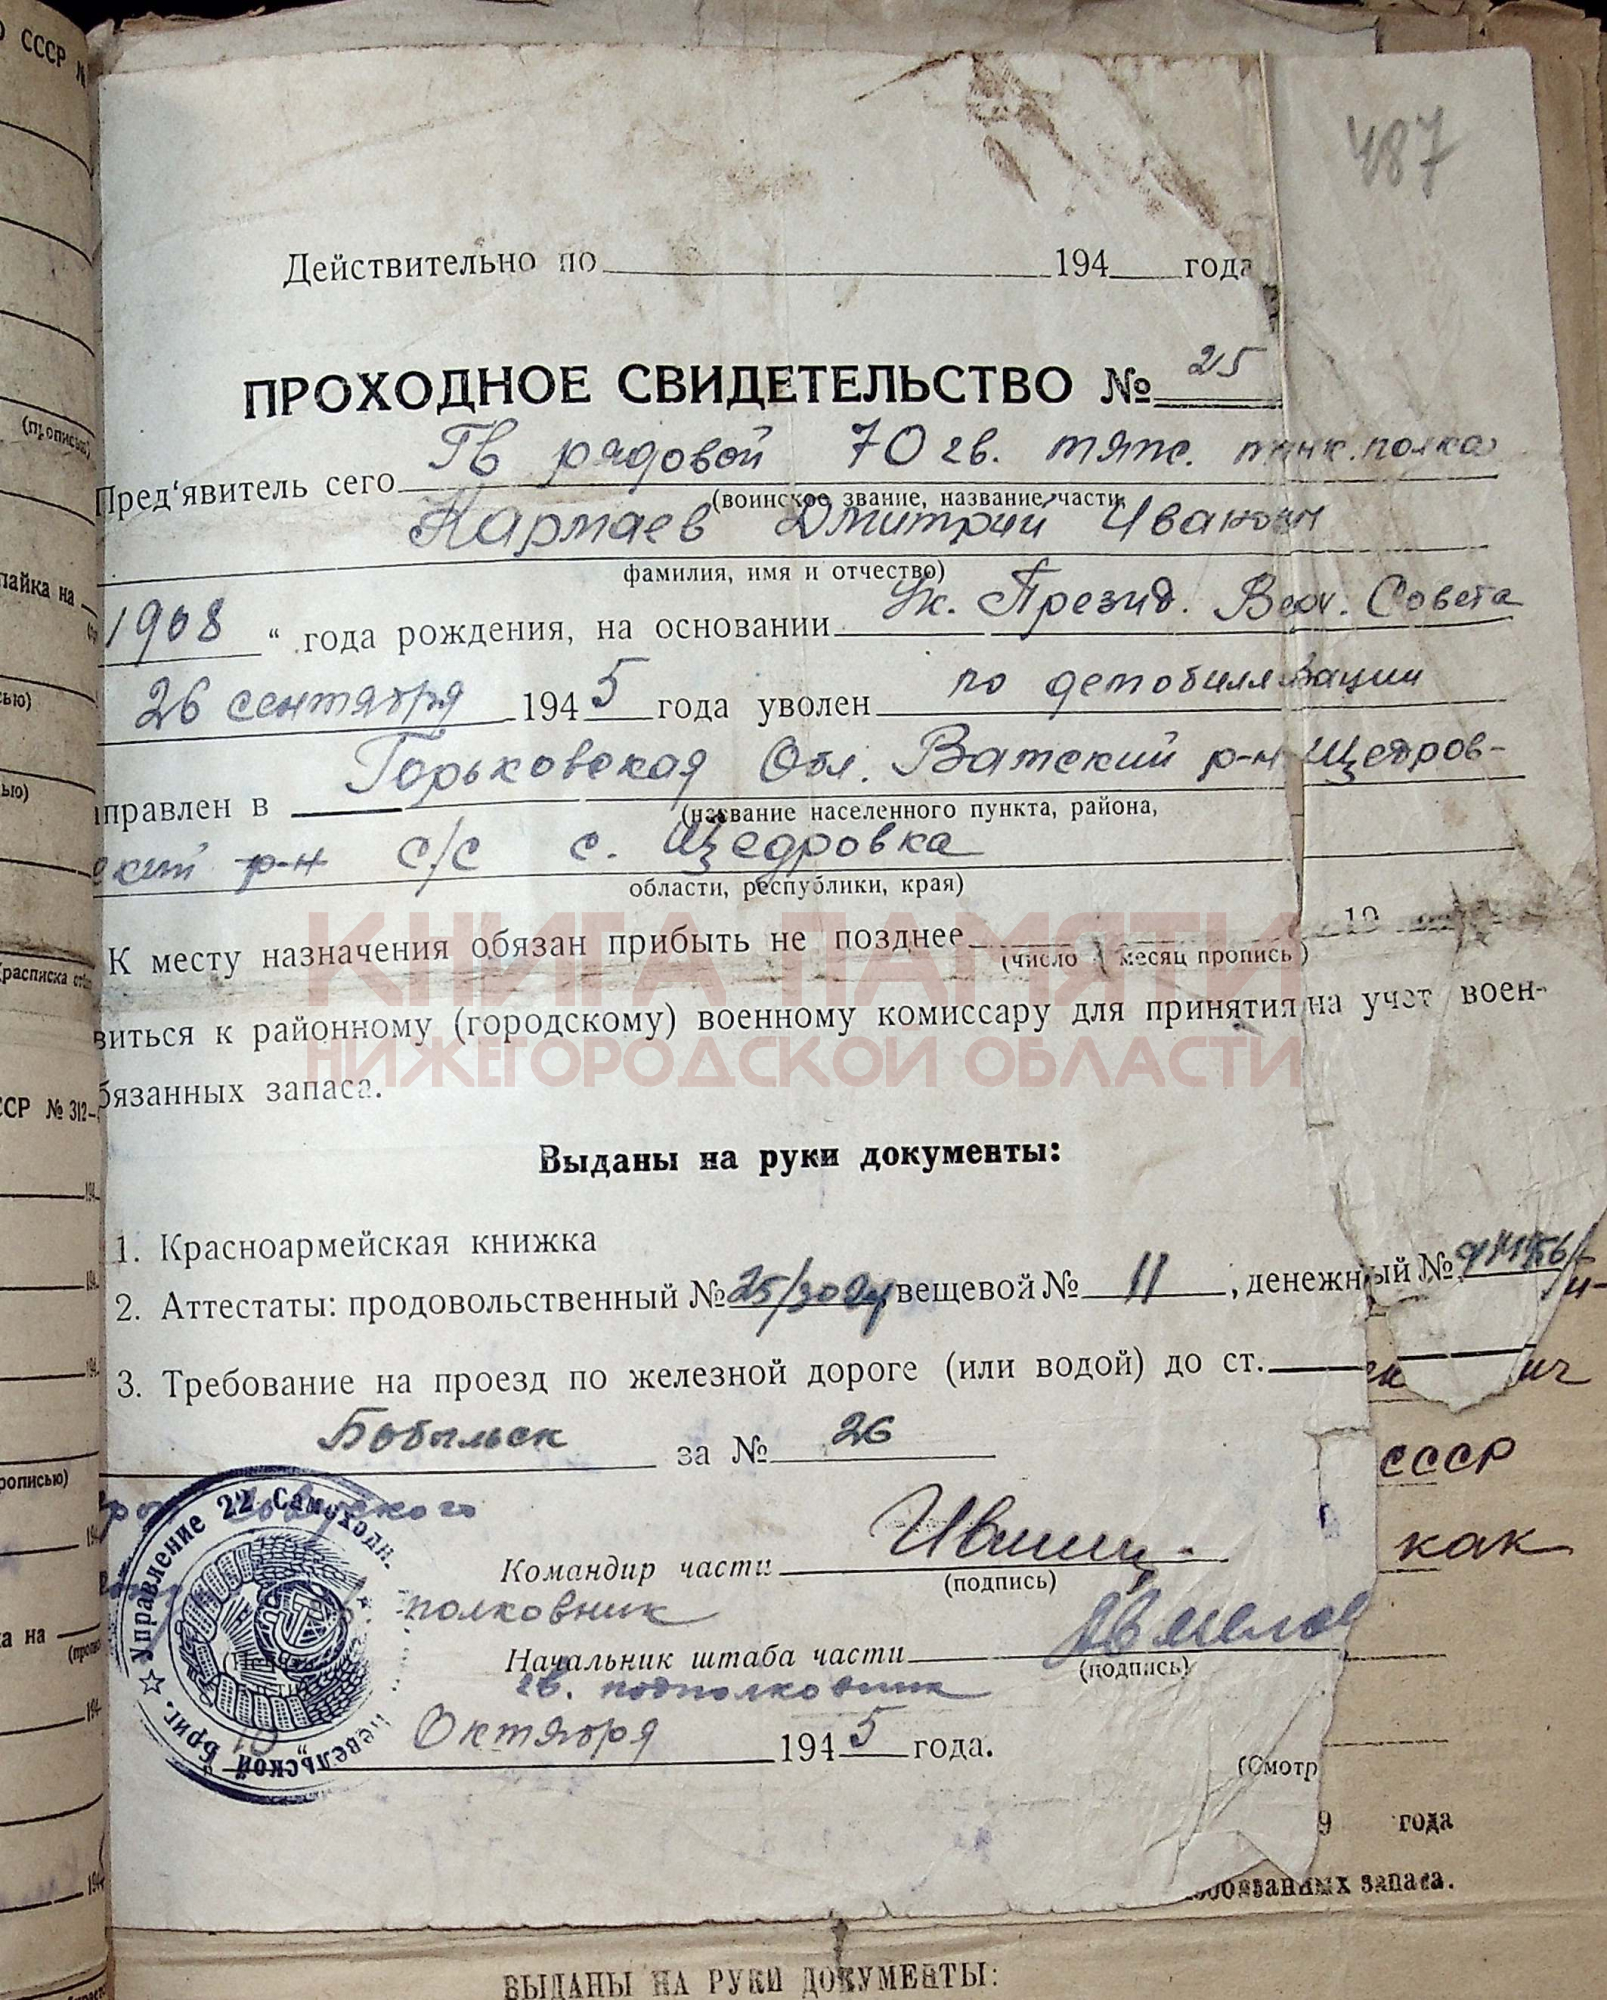 О СССР №
487
Действительно по 194 года
ПРОХОДНОЕ СВИДЕТЕЛЬСТВО № 25
Гв рядовой 70 гв. тяж. танк. полка
Пред‘явитель сего
(воинское звание, название части,
Кармаев Дмитрий Иванович
фамилия, имя и отчество)
Ук. Презид. Верх. Совета
1908 “ года рождения, на основании
26 сентября 1945 года уволен по демобилизации
Горьковская Обл. Ватский р-н Щедров-
аправлен в
(название населенного пункта, района,
ский р-н с/с с. Щедровка
области, республики, края)
КНИГА ПАМЯТИ
НИЖЕГОРОДСКОЙ ОБЛАСТИ
К месту назначения обязан прибыть не позднее 19
(число месяц прописью)
виться к районному (городскому) военному комиссару для принятия на учет воен-
бязанных запаса.
Выданы на руки документы:
1. Красноармейская книжка
2. Аттестаты: продовольственный № 25/ вещевой № 11, денежный №
3. Требование на проезд по железной дороге (или водой) до ст.
Бобыльск за № 26
СССР
как
Управление 22 Самоходн. Невельской Бриг.
Командир части
(подпись)
полковник
Начальник штаба части
(подпись)
гв. подполковник
10 Октября 1945 года.
(Смотр
9 года
обязанных запаса.
ВЫДАНЫ НА РУКИ ДОКУМЕНТЫ:
(прописью)
пайка на
(расписка
ССР № 312-